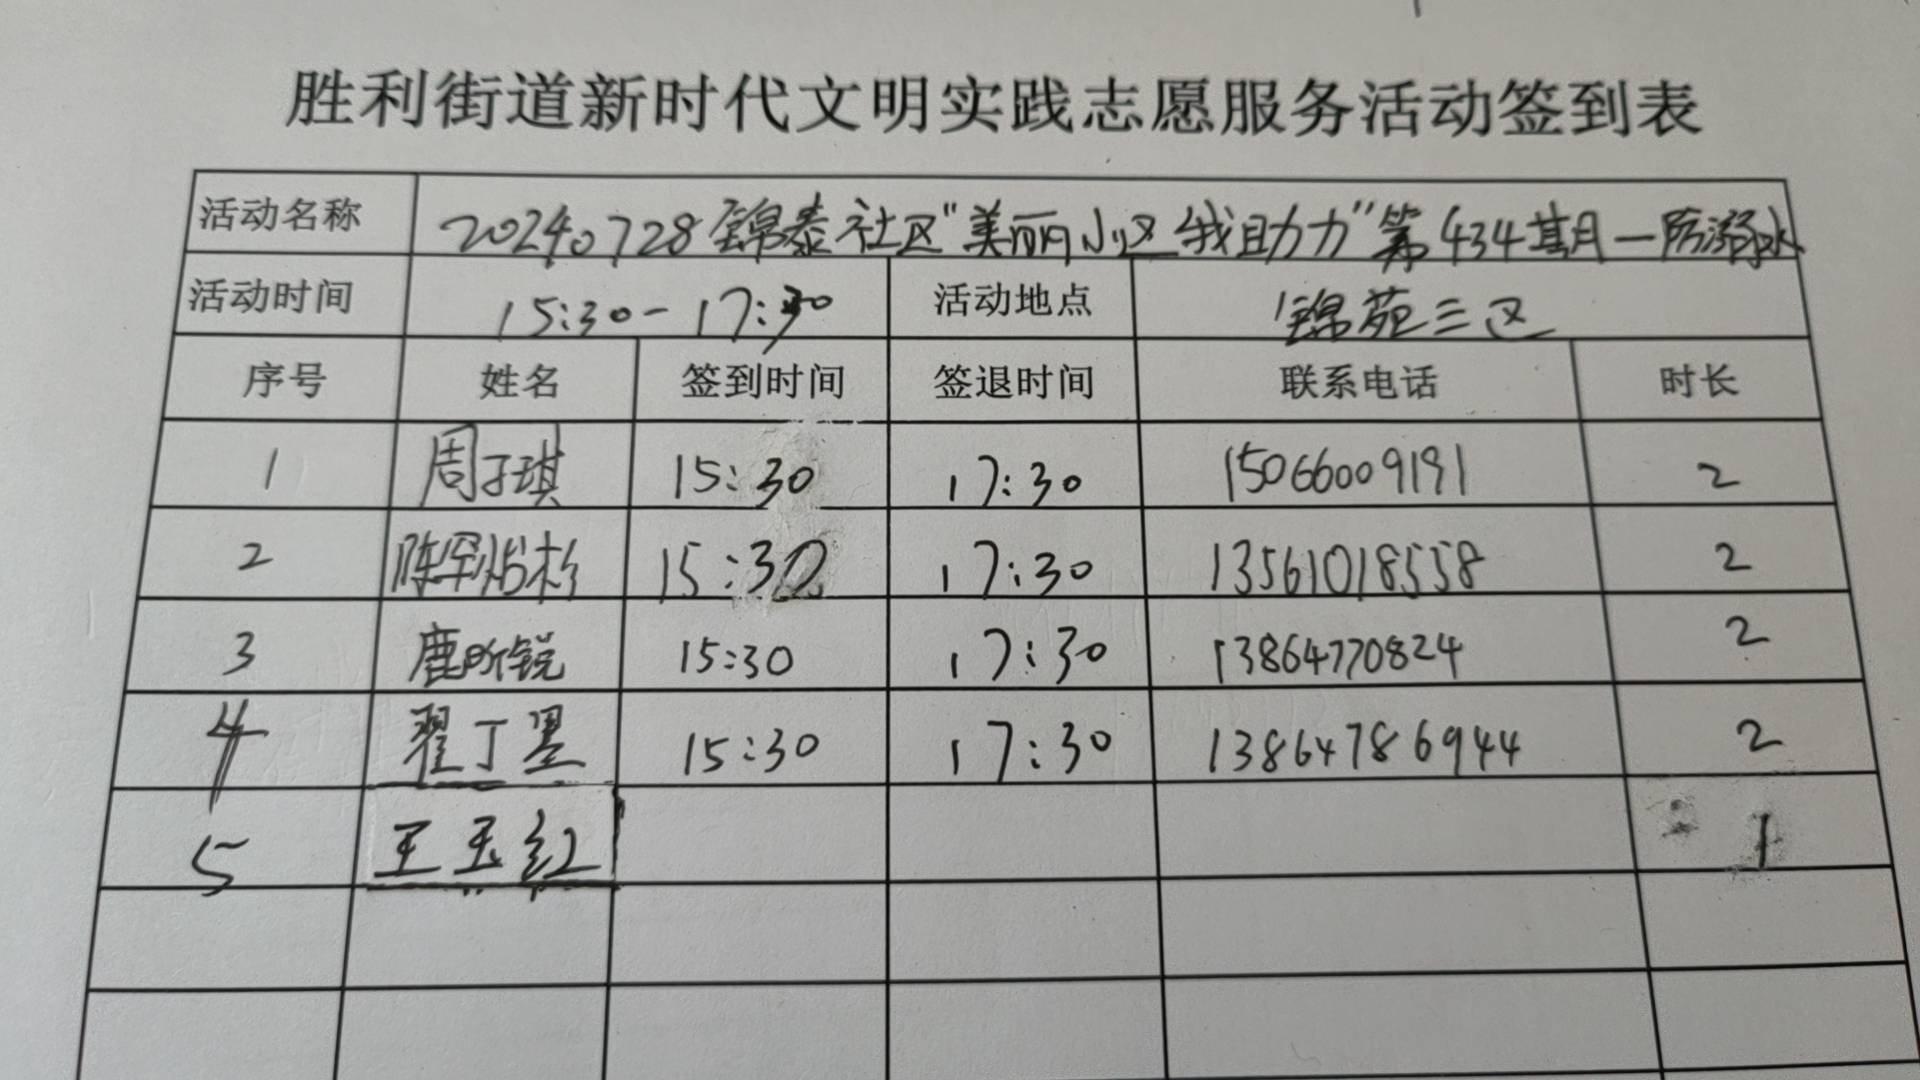 胜利街道新时代文明实践志愿服务活动签到表
活动名称 20240728锦泰社区"美丽小区 我助力"第434期—防溺水
活动时间 15:30-17:30 活动地点 锦苑三区
序号 姓名 签到时间 签退时间 联系电话 时长
1 周子琪 15:30 17:30 15066009191 2
2 15:30 17:30 13561018558 2
3 鹿昕锐 15:30 17:30 13864770824 2
4 翟丁墨 15:30 17:30 13864786944 2
5 王玉红 1